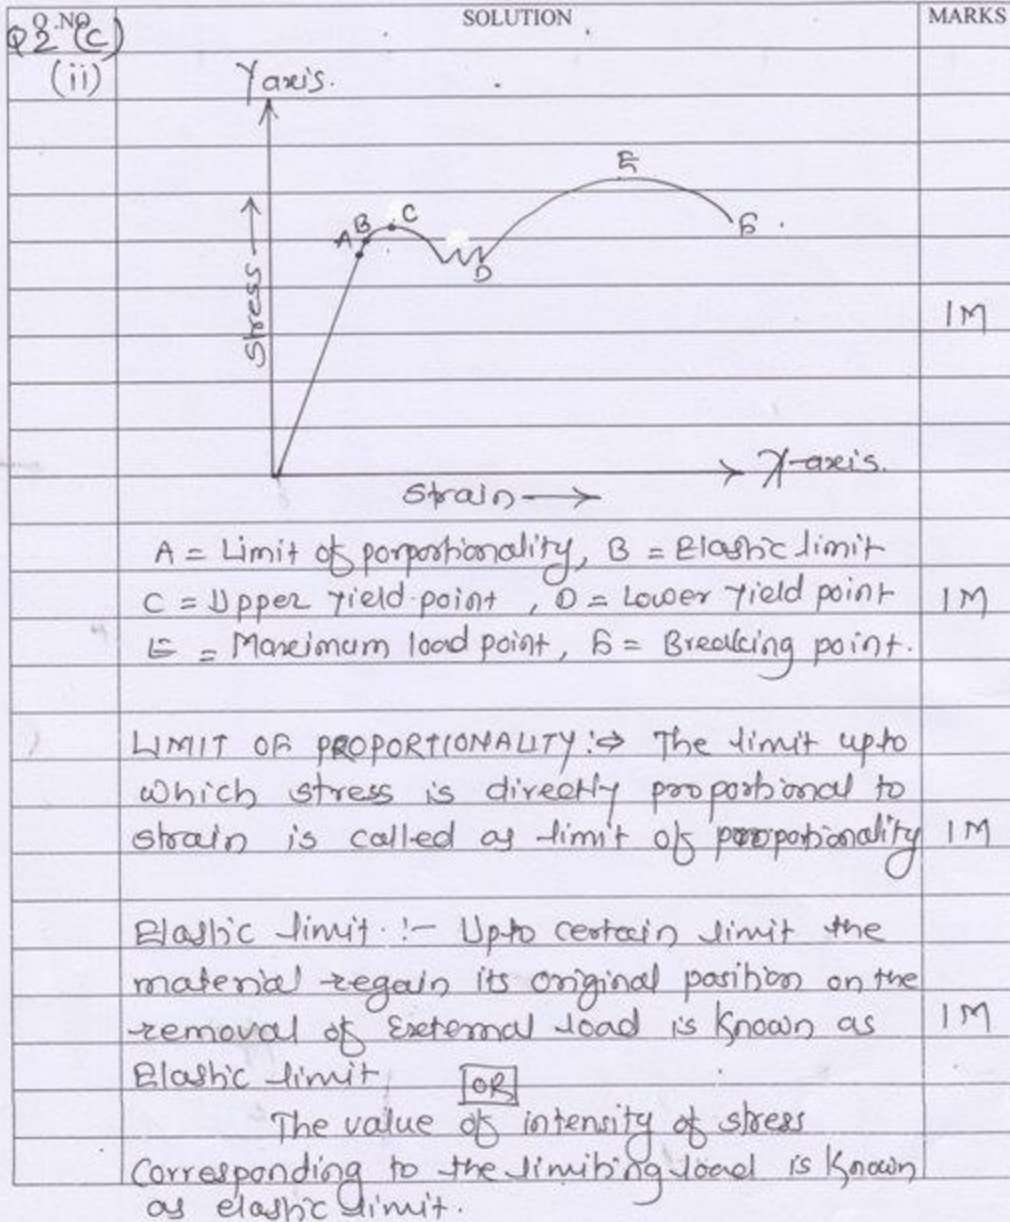 Q.NO. SOLUTION MARKS
Q2 (C)
(ii)
Y axis.
E
A B C
F.
D
Stress →
1M
X-axis.
Strain →
A = Limit of porportionality, B = Elastic limit
C = Upper yield point, D = Lower yield point 1M
E = Maximum load point, F = Breaking point.
LIMIT OF PROPORTIONALITY :⇒ The limit upto
which stress is directly proportional to
strain is called as limit of proportionality 1M
Elastic limit :- Upto certain limit the
material regain its original position on the
removal of External load is known as 1M
Elastic limit OR
The value of intensity of stress
corresponding to the limiting load is known
as elastic limit.